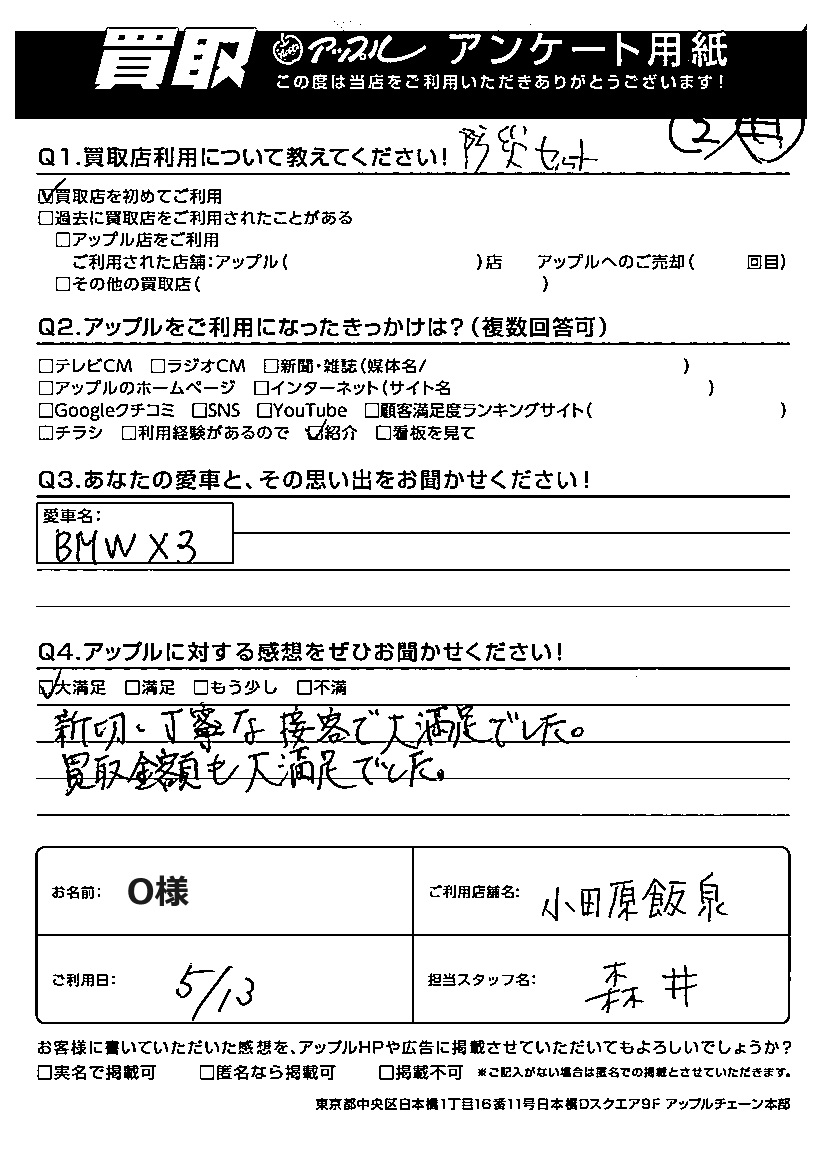 買取 アップル アンケート用紙
この度は当店をご利用いただきありがとうございます!
Q1.買取店利用について教えてください! 防災セット
☑買取店を初めてご利用
□過去に買取店をご利用されたことがある
□アップル店をご利用
ご利用された店舗:アップル( )店 アップルへのご売却( 回目)
□その他の買取店( )
Q2.アップルをご利用になったきっかけは?(複数回答可)
□テレビCM □ラジオCM □新聞・雑誌(媒体名/ )
□アップルのホームページ □インターネット(サイト名 )
□Googleクチコミ □SNS □YouTube □顧客満足度ランキングサイト( )
□チラシ □利用経験があるので ☑紹介 □看板を見て
Q3.あなたの愛車と、その思い出をお聞かせください!
愛車名:
BMW X3
Q4.アップルに対する感想をぜひお聞かせください!
☑大満足 □満足 □もう少し □不満
親切・丁寧な接客で大満足でした。
買取金額も大満足でした。
お名前: O様 ご利用店舗名: 小田原飯泉
ご利用日: 5/13 担当スタッフ名: 森井
お客様に書いていただいた感想を、アップルHPや広告に掲載させていただいてもよろしいでしょうか?
□実名で掲載可 □匿名なら掲載可 □掲載不可 ※ご記入がない場合は匿名での掲載とさせていただきます。
東京都中央区日本橋1丁目16番11号日本橋Dスクエア9F アップルチェーン本部